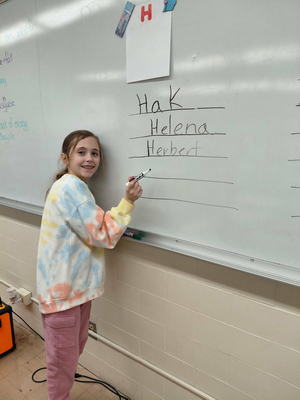 H
HaK
Helena
Herbert